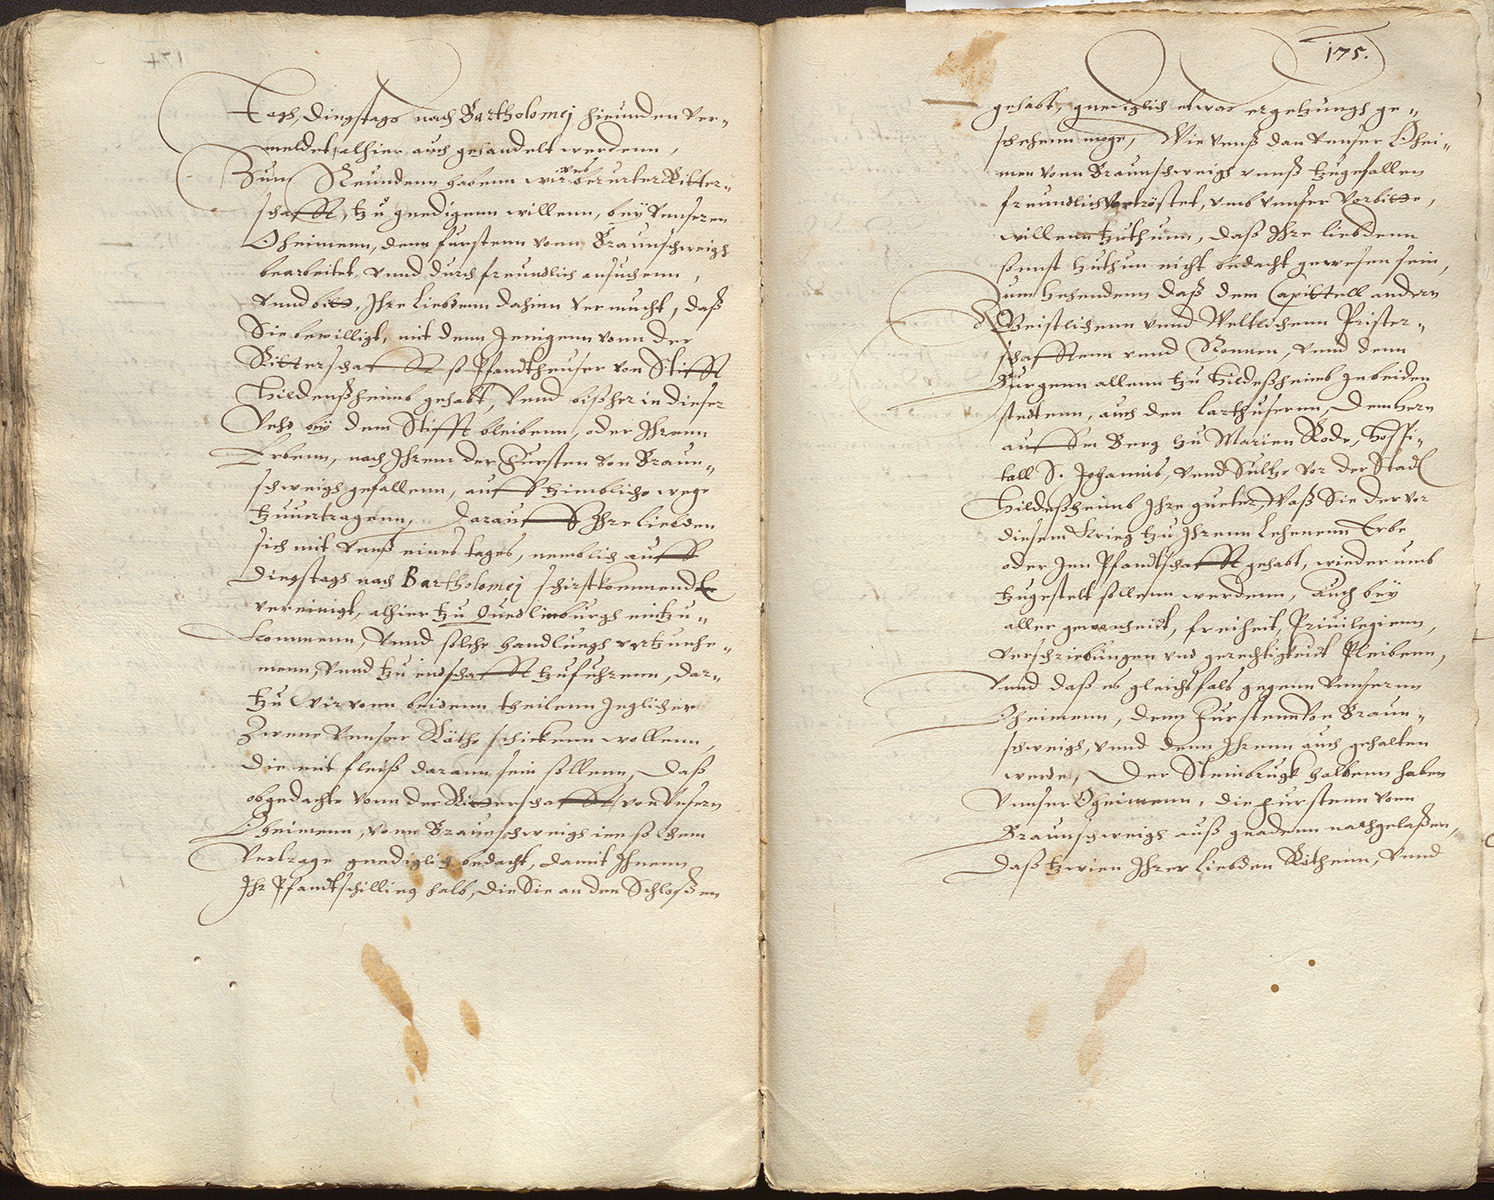 Tags, Dingstags nach Bartholomej hierunden ver-
meldet, alhier auch gehandelt werdenn,
Zum Neundenn habenn wir vns berurter Ritter-
schafft, tzu gnedigenn willenn, bey vnseren
Oheimenn, denn furstenn vonn Braunschweigh
bearbeitet, vnnd durch freundlich ansuchenn,
vnnd bitt, Ihre Liebdenn dahinn vermucht, daß
Sie bewilligt, mit denn Jenigenn vonn der
Ritterschafft so Pfandtheuser von Stifft
Hildenßheimb gehabt, vnnd bißher in dieser
Vehd bey dem Stifft bleibenn, oder Ihrenn
Erbenn, nach Ihrem der Fursten von Braun-
schweigh gefallenn, auff tzimbliche wege
tzuuertragenn, Darauff Ihre Liebden
sich mit vnnß eines tages, nemblich auff
Dingstags nach Bartholomej schirstkommende
vereinigt, alhier tzu Quedlinburgh eintzu-
kommenn, vnnd solche handlungh vortzuneh-
menn, vnnd tzu endschafft tzufuhrenn, dar-
tzu Wir vonn beidenn theilenn Jeglicher
Zwene vnser Räthe schickenn wollenn,
die mit fleiß darann sein sollenn, daß
obgedachte vonn der Ritterschafft, von vnsern
Oheimenn, vonn Braunschweigh inn solchem
Vertrage gnediglich bedacht, damit Ihnenn
Ihr Pfandtschilling halb, die Sie an den Schloßen
175.
gehabt, gnediglich etwas ergetzungh ge-
schehenn möge, Wie vnnß dan vnnser Ohei-
men vonn Braunschweigh vnnß tzugefallen
freundlich vertröstet, vmb vnnser vorbitte,
willenn tzuthunn, daß Ihre liebdenn
sonnst tzuthun nicht bedacht gewesen sein,
Zum Zehendenn daß dem Capittell andern
Geistlichenn vnnd Weltlichenn Prister-
schafftenn vnnd Nonnen, vnnd denn
Bürgern allenn tzu Hildeßheimb in beiden
stedtenn, auch den Carthusernn, Dem hern
auffm Berg tzu Marien Rode, Hospi-
tall S. Johannis, vnnd Sultze vor der Stadt
Hildeßheimb Ihre gueter, Waß Sie der vor
diesem Krieg tzu Ihrenn Lehenenn Erbe
oder Inn Pfandtschafft gehabt, wiederumb
tzugestelt sollenn werdenn, Auch bey
aller gewonheidt, freiheit, Priuilegienn,
verschriebungen vnd gerechtigkeit Pleibenn,
vnnd daß es gleichsfals gegenn vnnserenn
Oheimenn, denn Furstenn von Braun-
schweigh, vnnd denn Ihrenn auch gehalten
werde, Der Steinbrugk halbenn haben
vnnser Oheimenn, die Furstenn vonn
Braunschweigh auß gnadenn nachgelaßen,
daß tzwien Ihrer Liebden Räthenn, vnnd